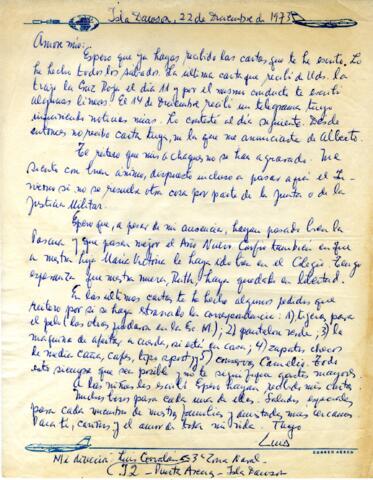 Isla Dawson, 22 de Diciembre de 1973
Amor mío:
Espero que ya hayas recibido las cartas que te he escrito. Lo
he hecho todos los sábados. La última carta que recibí de Uds. la
trajo la Cruz Roja el día 11 y por el mismo conducto te escribí
algunas líneas. El 14 de Diciembre recibí un telegrama tuyo
noticias mías. Lo contesté al día siguiente. Desde
entonces no recibo carta tuya, ni la que me anunciaste de Alberto.
Te reitero que mis achaques no se han agravado. Me
siento con buen ánimo, dispuesto incluso a pasar aquí el In-
vierno si no se resuelve otra cosa por parte de la Junta o de la
Justicia Militar.
Espero que, a pesar de mi ausencia, hayan pasado bien la
Pascua y que pasen mejor el Año Nuevo. Confío también en que
a nuestra hija María Victoria le haya ido bien en el Colegio. Tengo
esperanza que nuestra nuera, Ruth, haya quedado en libertad.
En las últimas cartas te he hecho algunos pedidos que
reitero por si se haya atrasado la correspondencia: 1) tijeras para
el pelo (las otras quedaron en la Esc. M.); 2) pantalón verde; 3) la
máquina de afeitar a cuerda, si está en casa; 4) zapatos chocos
de media caña, café, tipo sport y 5) Camelia. Todo
esto siempre que sea posible y no te signifique gastos mayores.
A las niñas les escribí. Espero hayan recibido mis
Muchos besos para cada una de ellas. Saludos especiales
para cada miembro de nuestra familia y amistades más cercanas.
Para ti, cariños y el amor de toda mi vida. Tuyo
Luis
CORREO AEREO
Mi dirección: Luis Corvalán 3ª Zona Naval -
Punta Arenas - Isla Dawson